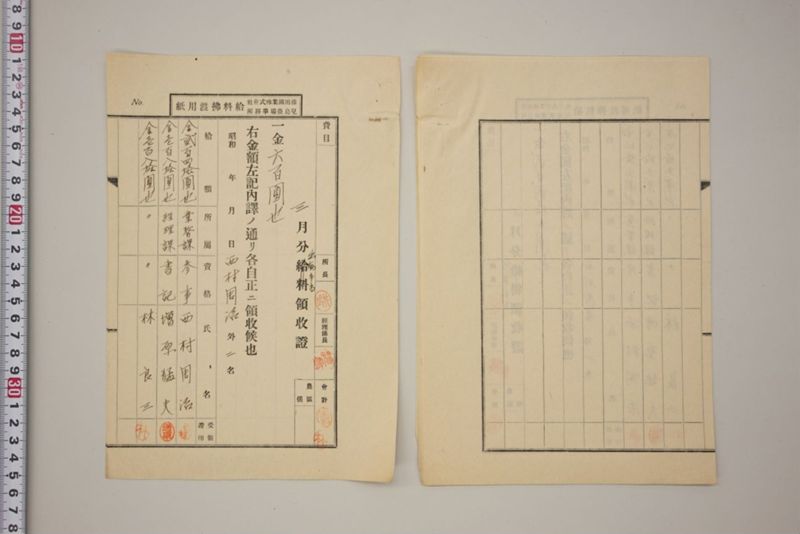 給料拂渡用紙
No.
費目
所長
經理係長
會計
農區係
三月分給料領收證
一金六百圓也
右金額左記內譯ノ通リ各自正ニ領收候也
昭和 年 月 日 西村周治 外二名
給額 所屬 資格 氏名 受領證印
金貳百四拾圓也 業務課 參事 西村周治
金壱百八拾圓也 經理課 書記 増原猛夫
金壱百八拾圓也 〃 〃 林良三